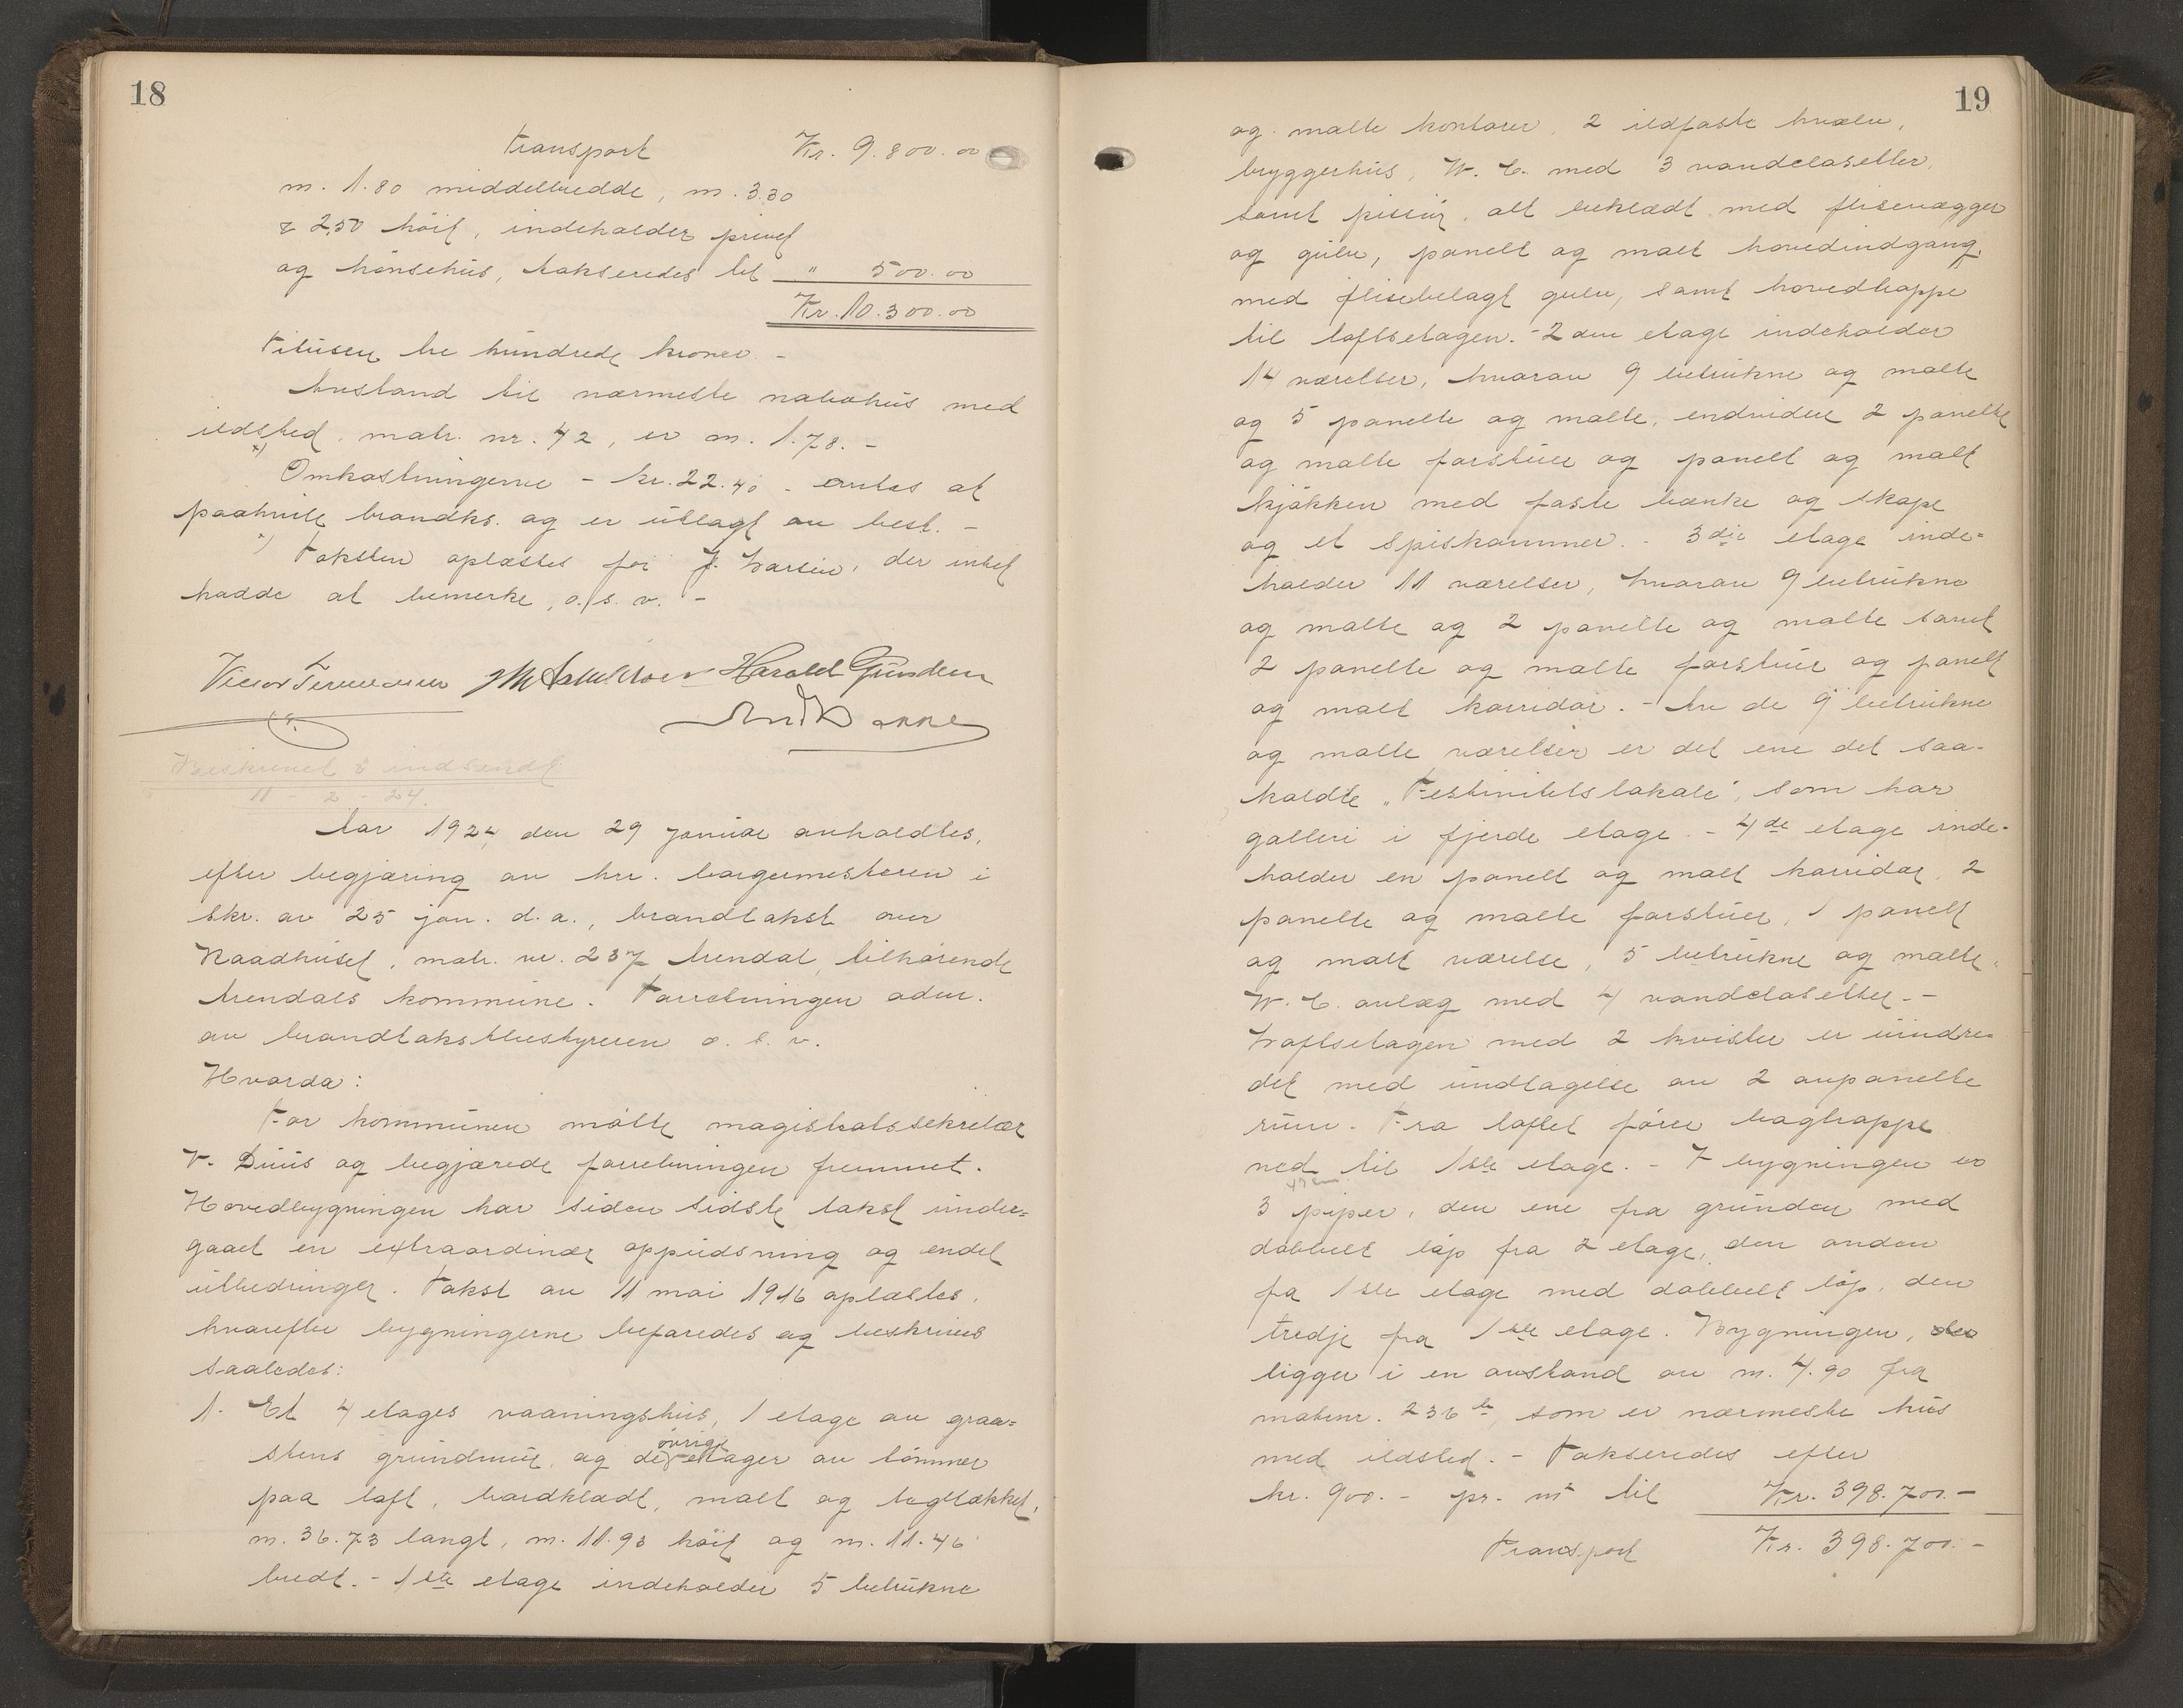 18
Transport Kr. 9.800.00
m. 1.80 middelbredde, m. 3.30
& 2,50 höit, indeholder privet
og hönsehus, takseredes til " 500.00
Kr. 10.300.00
Titusen tre hundrede kroner. -
Avstand til nærmeste nabohus med
ildsted, matr. nr. 42, er m. 1.78. -
x) Omkostningerne - kr. 22.40 - avites at
paahvile brandks. og er utlagt av best. -
x) Taksten oplæstes for J. Larsen, der intet
hadde at bemerke, o. s. v. -
Harald Gundersen
Beskrevet & indsendt
11 - 2 - 24.
Aar 1924 den 29 januar avholdtes,
efter begjæring av hr. borgermesteren i
skr. av 25 jan. d. a., brandtakst over
Raadhuset, matr. nr. 237 Arendal, tilhörende
Arendals kommune. Forretningen adm.
av brandtakstbestyreren o. s. v.
Hvorda:
For kommunen mötte magistratssekretær
V. Duus og begjærede forretningen fremmet.
Hovedbygningen har siden sidste takst under=
gaaet en extraordinær oppudsning og endel
utbedringer. Takst av 11 mai 1916 oplæstes,
hvorefter bygningerne befaredes og beskrives
saaledes:
1. Et 4 etages vaaningshus, 1 etage av graa=
stens grundmur, og de övrige etager av tömmer
paa loft, bordklædt, malt og tegltækket,
m. 36.73 langt, m. 11.93 höit og m. 11.46
bredt. - 1ste etage indeholder 5 betrukne
19
og malte kontorer, 2 ildfaste hvælv,
bryggerhus, W. C. med 3 vandclosetter,
samt pissoir, alt beklædt med flisevægger
og gulv, panelt og malt hovedindgang,
med flisebelagt gulv, samt hovedtrappe
til loftsetagen. - 2den etage indeholder
14 værelser, hvorav 9 betrukne og malte
og 5 panelte og malte, endvidere 2 panelte
og malte forstuer og panelt og malt
kjökken med faste bænke og skape
og et spiskammer. - 3die etage inde=
holder 11 værelser, hvorav 9 betrukne
og malte og 2 panelte og malte samt
2 panelte og malte forstuer og panelt
og malt korridor. - Av de 9 betrukne
og malte værelser er det ene det saa-
kaldte „Festivitetslokale", som har
galleri i fjerde etage. - 4de etage inde-
holder en panelt og malt korridor, 2
panelte og malte forstuer, 1 panelt
og malt værelse, 5 betrukne og malte,
W. C. anlæg med 4 vandclosetter. -
Loftsetagen med 2 kvister er uindre-
det med undtagelse av 2 avpanelte
rum. Fra loftet förer bagtrappe
ned til 1ste etage. - I bygningen er
3 piper, den ene fra grunden med
dobbelt löp fra 2 etage, den anden
fra 1ste etage med dobbelt löp, den
tredje fra 1ste etage. Bygningen,
ligger i en avstand av m. 4.90 fra
matrnr. 236 b, som er nærmeste hus
med ildsted. - Takseredes efter
kr. 900. - pr. m² til Kr. 398.700. -
Transport Kr. 398.700. -